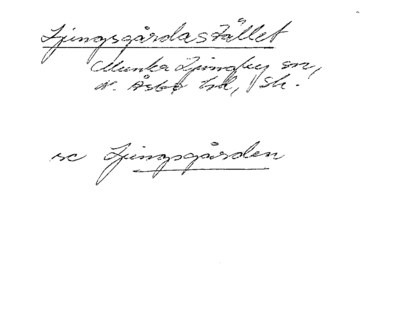 Ljungsgårdastället
Munka Ljungby sn,
N. Åsbo hd, Sk.
se Ljungsgården